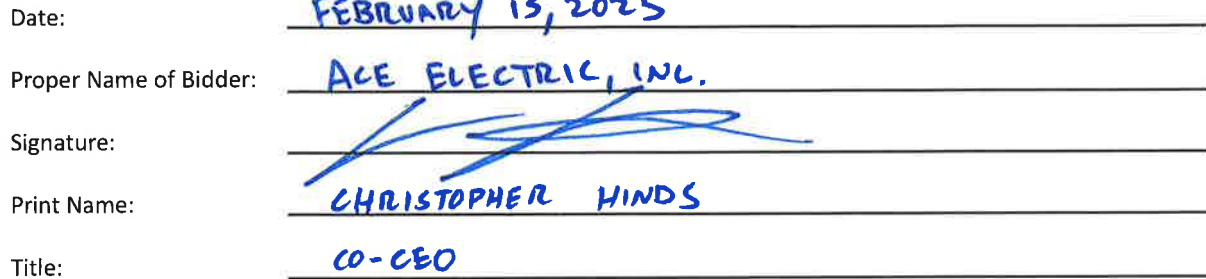 Date: FEBRUARY
Proper Name of Bidder: ACE ELECTRIC, INC.
Signature:
Print Name: CHRISTOPHER HINDS
Title: CO-CEO